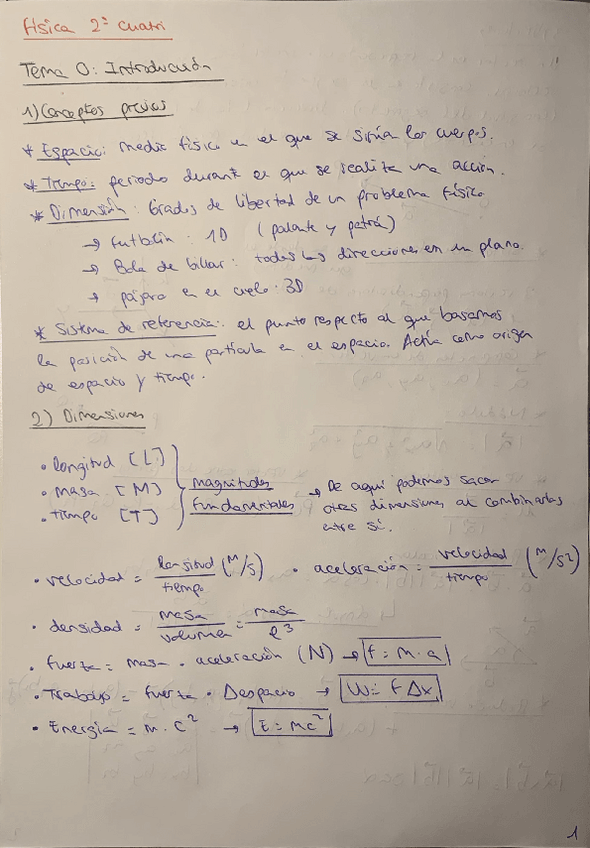 Física 2º cuatri
Tema 0: Introducción
1) Conceptos previos
* Espacio: medio físico en el que se sitúa los cuerpos.
* Tiempo: periodo durante el que se realiza una acción.
* Dimensión: Grados de libertad de un problema físico
→ futbolín: 1D (palante y patrá)
→ Bola de billar: todas las direcciones en un plano.
→ pájaro en el cielo: 3D
* Sistema de referencia: el punto respecto al que basamos
la posición de una partícula en el espacio. Actúa como origen
de espacio y tiempo.
2) Dimensiones
• longitud [L]
• masa [M]
• tiempo [T]
magnitudes
fundamentales
→ De aquí podemos sacar
otras dimensiones al combinarlas
entre sí.
• velocidad = longitud/tiempo (m/s) • aceleración = velocidad/tiempo (m/s²)
• densidad = masa/volumen = masa/l³
• fuerza = masa · aceleración (N) → F = m · a
• Trabajo = fuerza · Despacio → W = F Δx
• Energía = m · c² → E = mc²
1